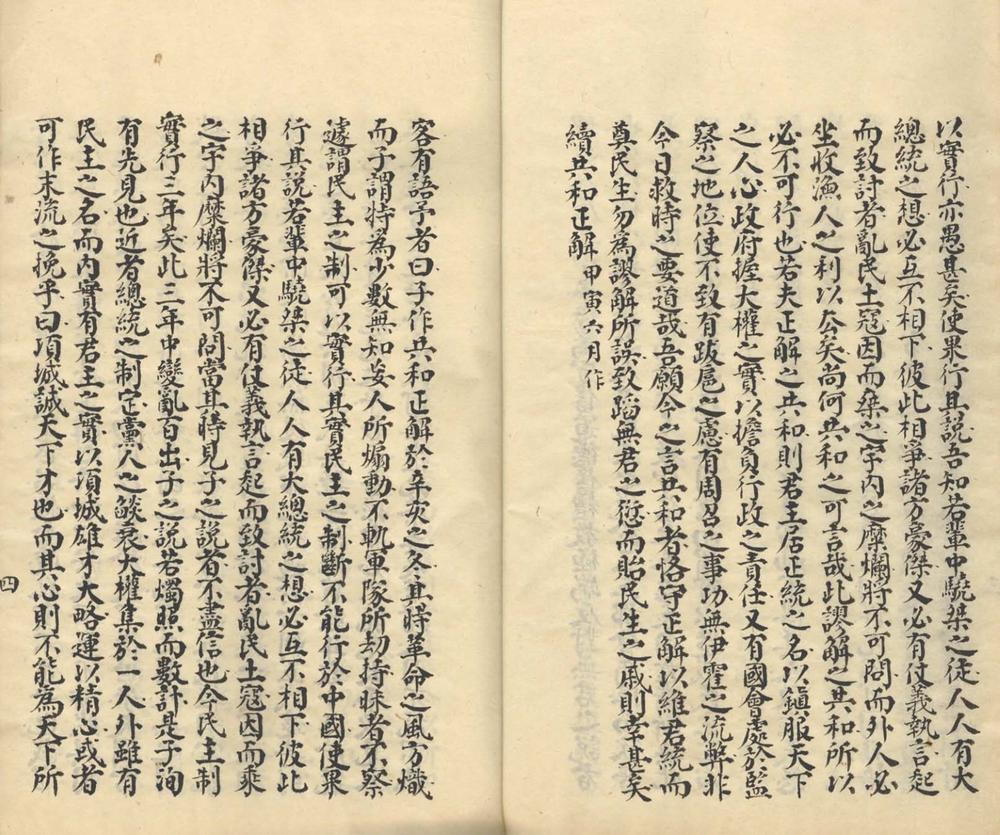 以實行亦愚甚矣使果行其說吾知若輩中驍桀之徒人人有大
總統之想必互不相下彼此相爭諸方豪傑又必有仗義執言起
而致討者亂民土寇因而椉之宇内之糜爛將不可問而外人必
坐收漁人之利以去矣尚何共和之可言哉此謬解之共和所以
必不可行也若夫正解之共和則君主居正統之名以鎮服天下
之人心政府握大權之實以擔負行政之責任又有國會處於監
察之地位使不致有跋扈之慮有周召之事功無伊霍之流弊非
今日救時之要道哉吾願今之言共和者恪守正解以維君統而
奠民生勿為謬解所誤致蹈無君之愆而貽民生之戚則幸甚矣
續共和正解甲寅六月作
客有語予者曰子作共和正解於辛亥之冬其時革命之風方熾
而子謂特為少數無知妄人所煽動不軌軍隊所劫持昧者不察
遽謂民主之制可以實行其實民主之制斷不能行於中國使果
行其說若輩中驍桀之徒人人有大總統之想必互不相下彼此
相爭諸方豪傑又必有仗義執言起而致討者亂民土寇因而乘
之宇内糜爛將不可問當其時見子之說者不盡信也今民主制
實行三年矣此三年中變亂百出子之說若燭照而數計是子洵
有先見也近者總統之制定黨人之燄衰大權集於一人外雖有
民主之名而内實有君主之實以項城雄才大略運以精心或者
可作末流之挽乎曰項城誠天下才也而其心則不能為天下所
四